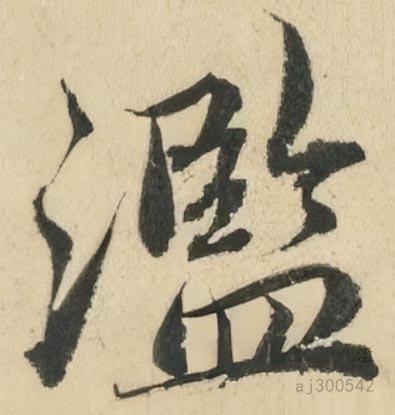 濫
滥
aj300542